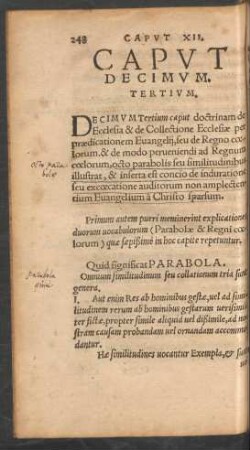 248 CAPVT XII.
CAPVT
DECIMVM.
TERTIVM.
DECIMVM Tertium caput doctrinam de
Ecclesia & de Collectione Ecclesiæ per
prædicationem Euangelij, seu de Regno cœ
lorum, & de modo perueniendi ad Regnum
cœlorum, octo parabolis seu similitudinibus
illustrat, & inserta est concio de induratione
seu excœcatione auditorum non amplecten
tium Euangelium à Christo sparsum.
Primum autem pueri meminerint explicationem
duorum uocabulorum (Parabolæ & Regni cœ
lorum) quæ sæpißimè in hoc capite repetuntur.
Quid significat PARABOLA.
Omnium similitudinum seu collationum tria sunt
genera.
I. Aut enim Res ab hominibus gestæ, uel ad simi
litudinem rerum ab hominibus gestarum uerisimili
ter fictæ, propter simile aliquid uel dißimile, ad no
stram causam probandam uel ornandam accommo
dantur.
Hæ similitudines uocantur Exempla, &